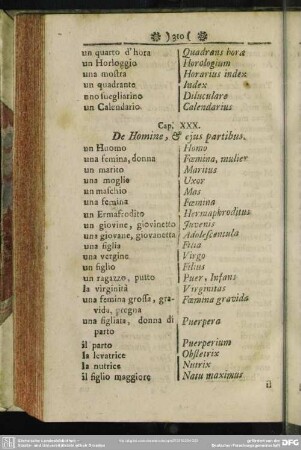 ) 310 (
un quarto d' hora Quadrans horæ
un Horloggio Horologium
una mostra Horarius index
un quadrante Index
uno svegliarino Diluculare
un Calendario. Calendarius
Cap. XXX.
De Homine, & ejus partibus.
un Huomo Homo
una femina, donna Fœmina, mulier
un marito Maritus
una moglie Uxor
un maschio Mas
una femina Fœmina
un Ermafrodito Hermaphroditus
un giovine, giovinetto Juvenis
una giovane, giovanetta Adolescentula
una figlia Filia
una vergine Virgo
un figlio Filius
un ragazzo, putto Puer, Infans
la virginità Virginitas
una femina grossa, gra- Fœmina gravida
vida, pregna
una figliata, donna di Puerpera
parto
il parto Puerperium
la levatrice Obstetrix
la nutrice Nutrix
il figlio maggiore Natu maximus
il